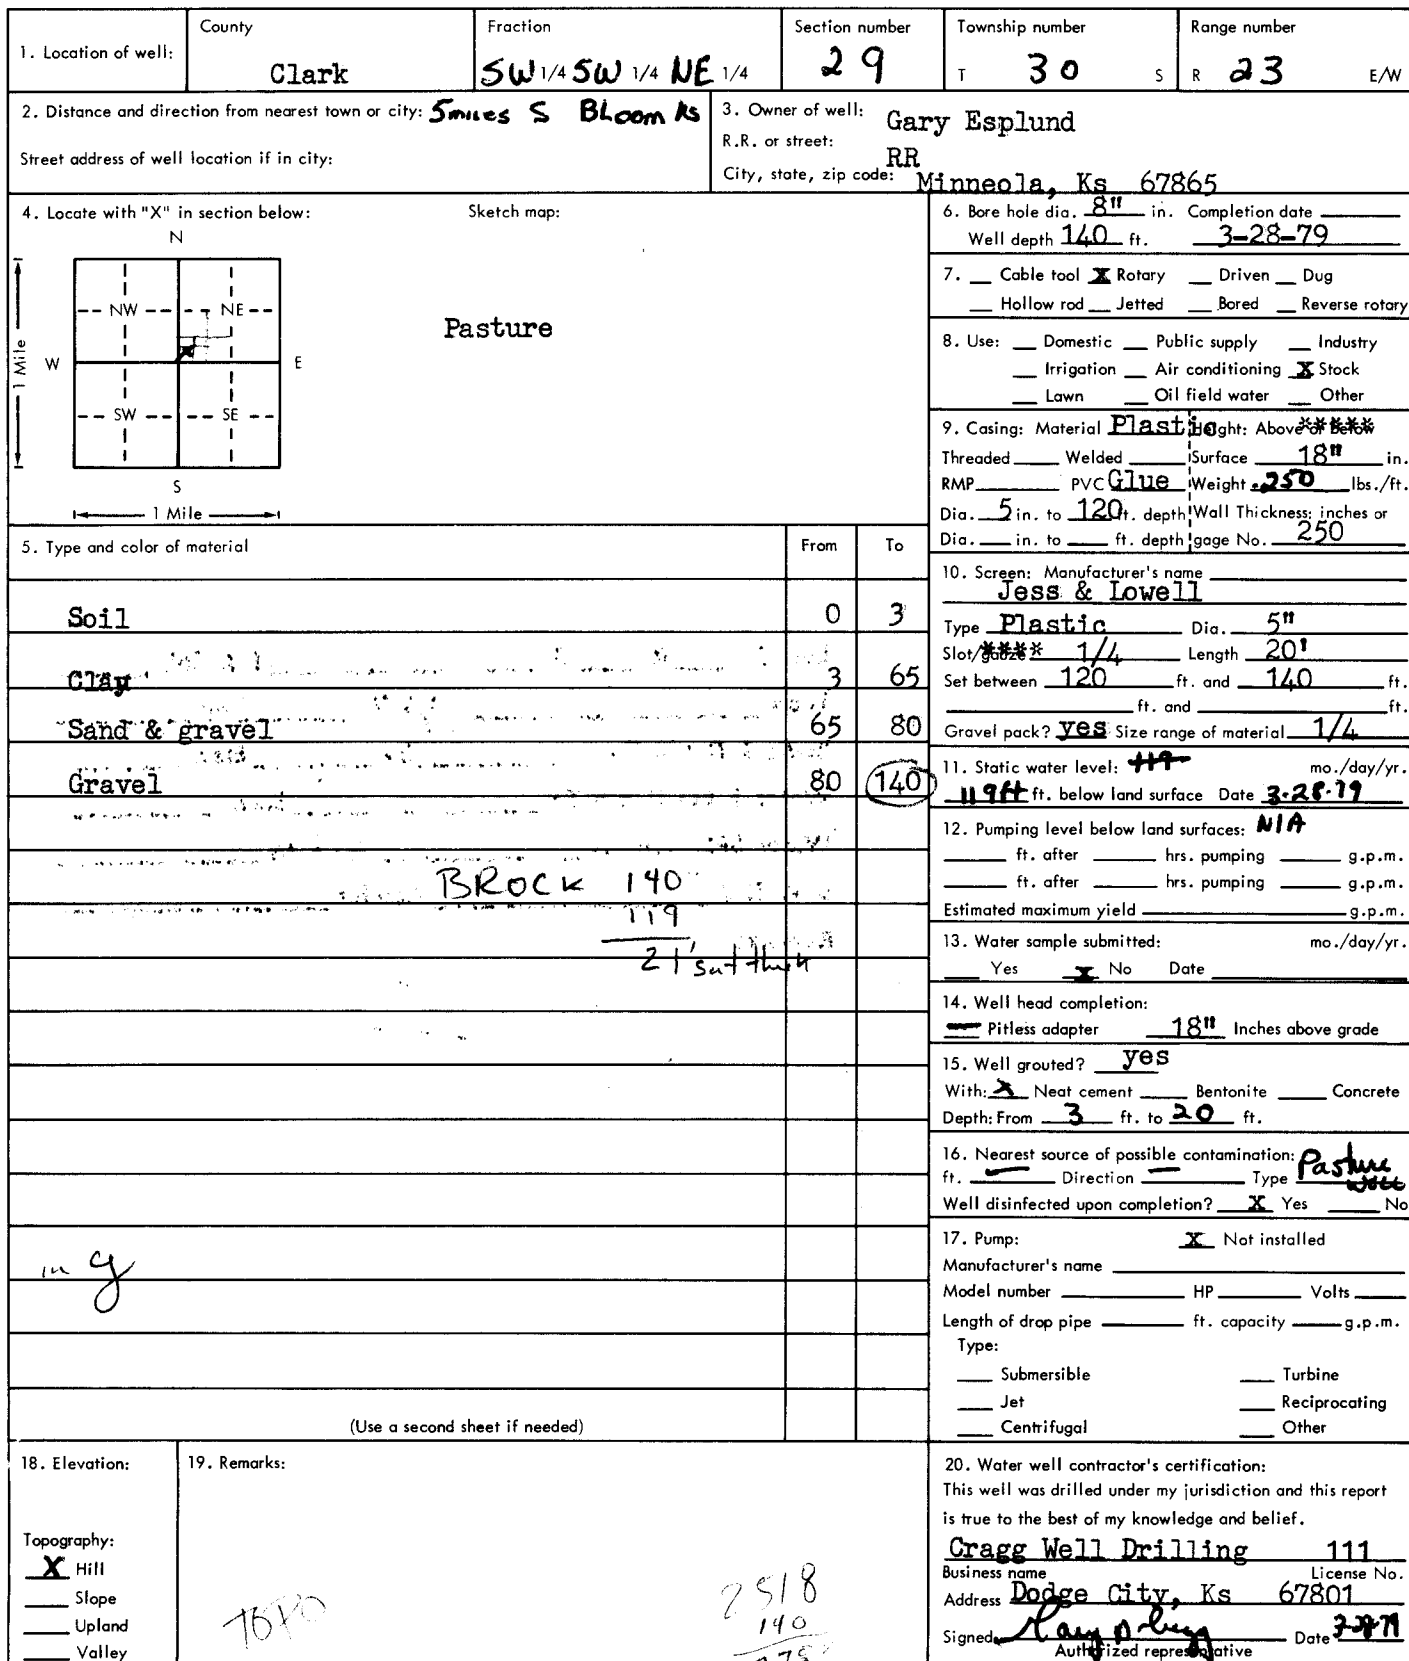 1. Location of well:
County
Clark
Fraction
SW 1/4 SW 1/4 NE 1/4
Section number
29
Township number
T 30 S
Range number
R 23 E/W
2. Distance and direction from nearest town or city: 5miles S Bloom Ks
Street address of well location if in city:
3. Owner of well: Gary Esplund
R.R. or street: RR
City, state, zip code: Minneola, Ks 67865
4. Locate with "X" in section below:
Sketch map:
N
NW NE
W E
SW SE
S
1 Mile
1 Mile
Pasture
6. Bore hole dia. 8" in. Completion date
Well depth 140 ft. 3-28-79
7. Cable tool X Rotary Driven Dug
Hollow rod Jetted Bored Reverse rotary
8. Use: Domestic Public supply Industry
Irrigation Air conditioning X Stock
Lawn Oil field water Other
9. Casing: Material Plastic Height: Above or below
Threaded Welded Surface 18" in.
RMP PVC Glue Weight .250 lbs./ft.
Dia. 5 in. to 120 ft. depth Wall Thickness: inches or
Dia. in. to ft. depth gage No. 250
5. Type and color of material From To
Soil 0 3
Clay 3 65
Sand & gravel 65 80
Gravel 80 140
BROCK 140
119
21' sat thick
in g
(Use a second sheet if needed)
10. Screen: Manufacturer's name
Jess & Lowell
Type Plastic Dia. 5"
Slot/gauze 1/4 Length 20'
Set between 120 ft. and 140 ft.
ft. and ft.
Gravel pack? yes Size range of material 1/4
11. Static water level: 119 mo./day/yr.
119ft ft. below land surface Date 3-28-79
12. Pumping level below land surfaces: N/A
ft. after hrs. pumping g.p.m.
ft. after hrs. pumping g.p.m.
Estimated maximum yield g.p.m.
13. Water sample submitted: mo./day/yr.
Yes X No Date
14. Well head completion:
Pitless adapter 18" Inches above grade
15. Well grouted? yes
With: X Neat cement Bentonite Concrete
Depth: From 3 ft. to 20 ft.
16. Nearest source of possible contamination:
ft. Direction Type Pasture
Well disinfected upon completion? X Yes No
17. Pump: X Not installed
Manufacturer's name
Model number HP Volts
Length of drop pipe ft. capacity g.p.m.
Type:
Submersible Turbine
Jet Reciprocating
Centrifugal Other
18. Elevation:
Topography:
X Hill
Slope
Upland
Valley
19. Remarks:
TOPO
2518
140
20. Water well contractor's certification:
This well was drilled under my jurisdiction and this report
is true to the best of my knowledge and belief.
Cragg Well Drilling 111
Business name License No.
Address Dodge City, Ks 67801
Signed Date 3-28-79
Authorized representative